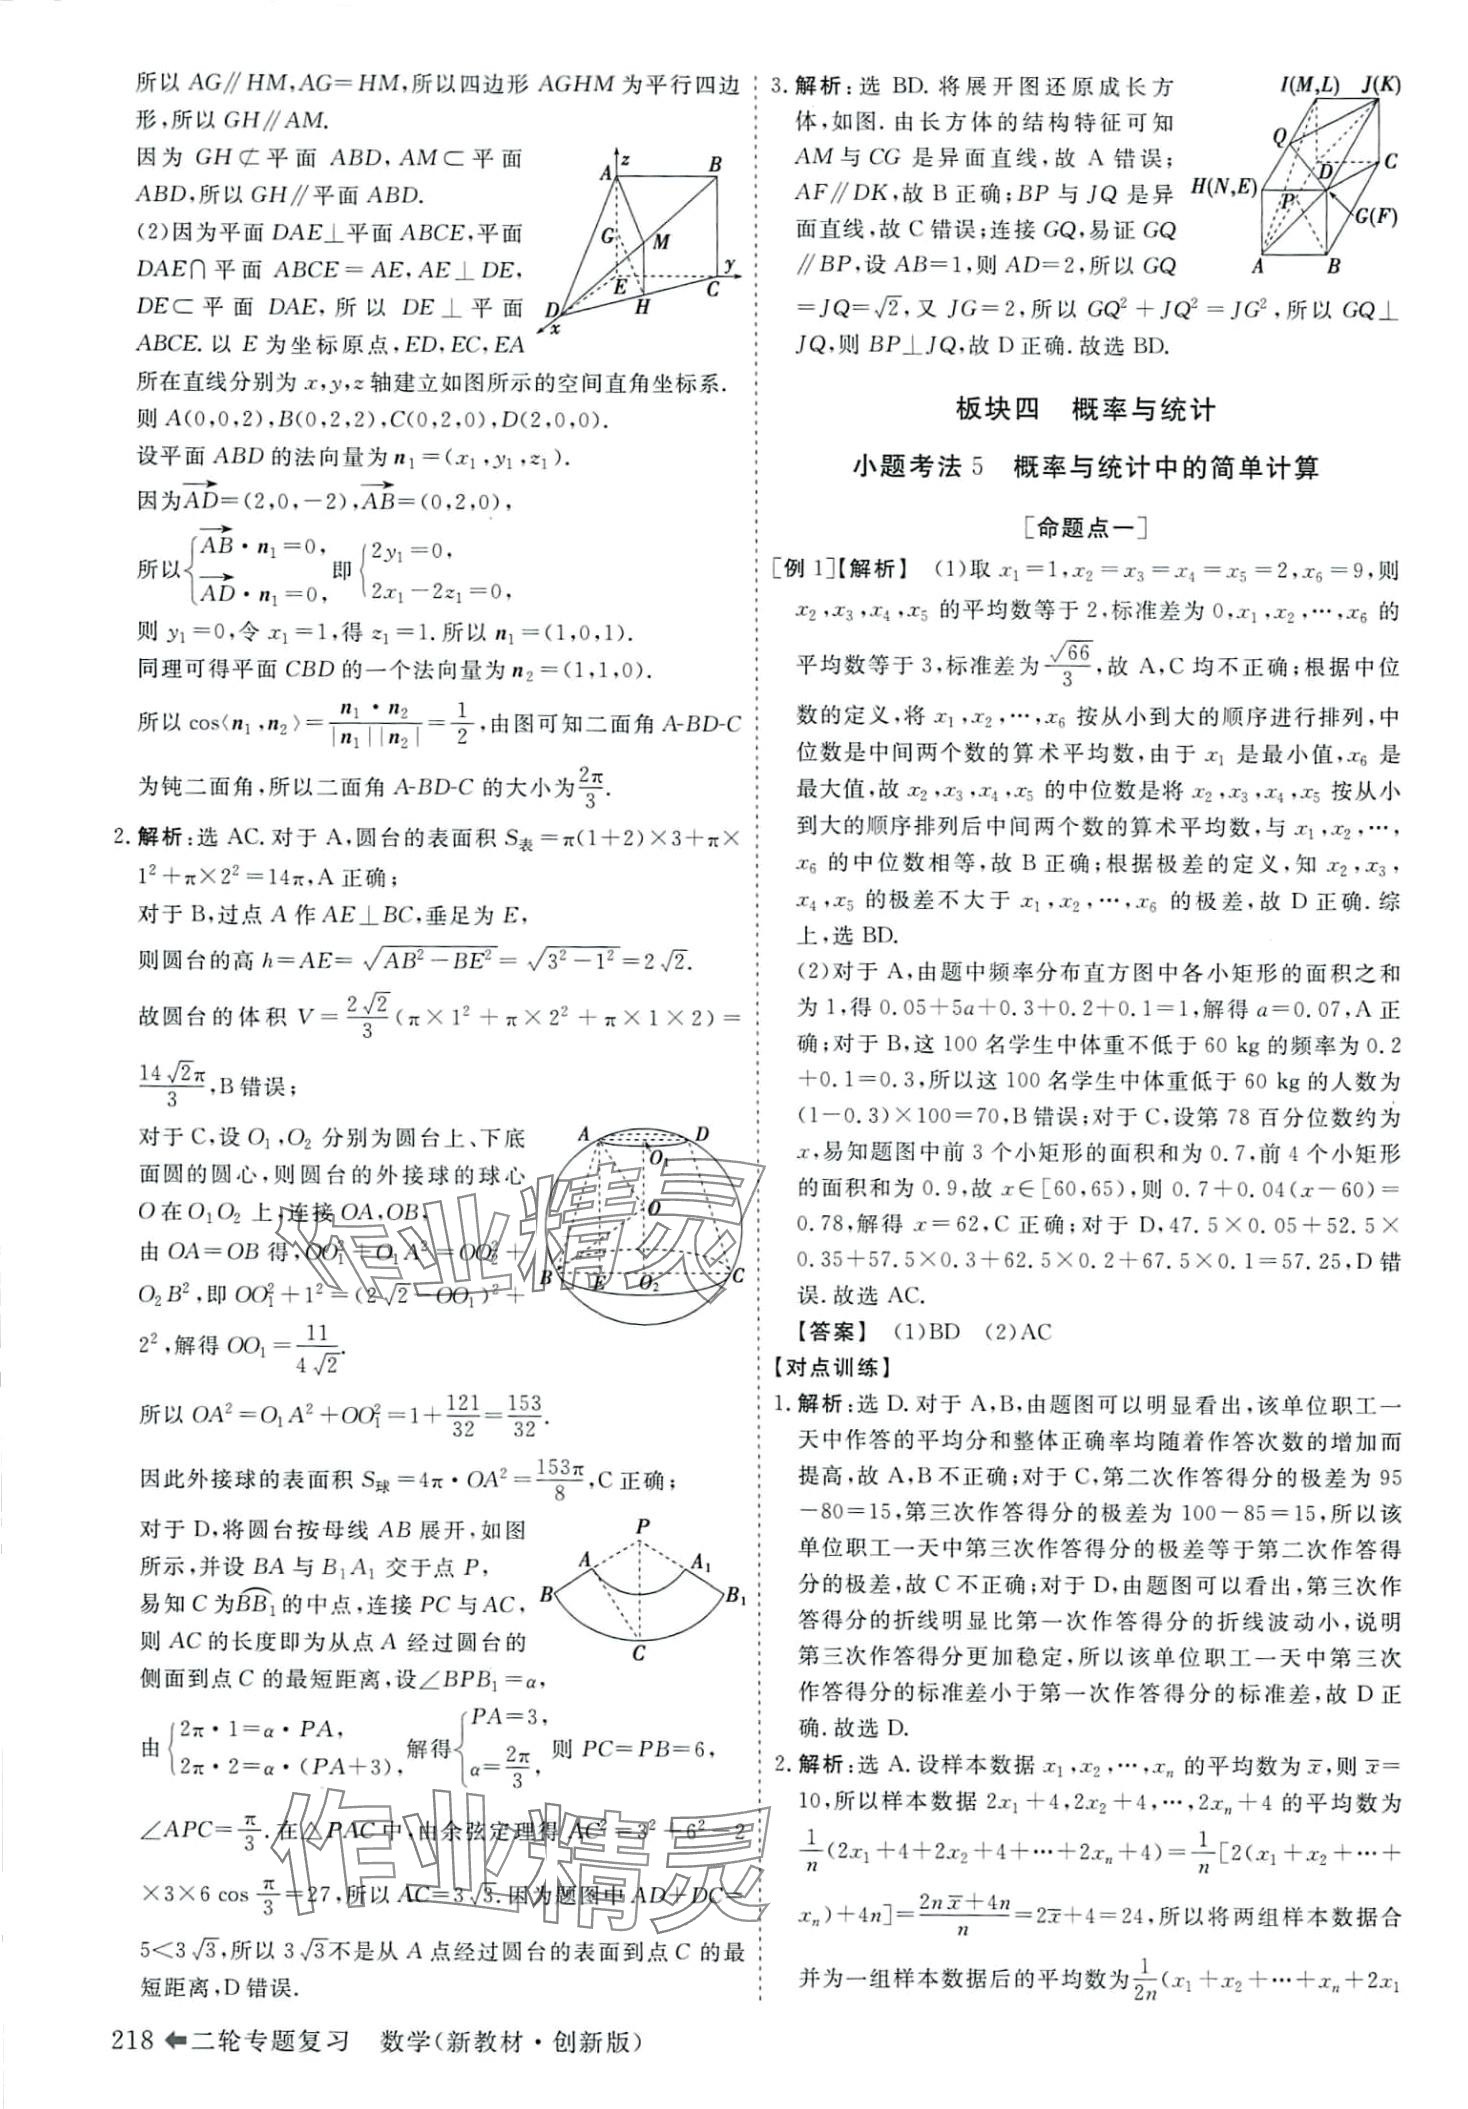 所以 AG∥HM,AG=HM,所以四边形 AGHM 为平行四边
形,所以 GH∥AM.
因为 GH⊄平面 ABD,AM⊂平面
ABD,所以 GH∥平面 ABD.
(2)因为平面 DAE⊥平面 ABCE,平面
DAE∩平面 ABCE=AE,AE⊥DE,
DE⊂平面 DAE,所以 DE⊥平面
ABCE.以 E 为坐标原点,ED,EC,EA
A B z G M E y D H C x
所在直线分别为 x,y,z 轴建立如图所示的空间直角坐标系.
则 A(0,0,2),B(0,2,2),C(0,2,0),D(2,0,0).
设平面 ABD 的法向量为 n₁=(x₁,y₁,z₁).
因为AD→=(2,0,-2),AB→=(0,2,0),
所以{AB→·n₁=0, AD→·n₁=0, 即{2y₁=0, 2x₁-2z₁=0,
则 y₁=0,令 x₁=1,得 z₁=1.所以 n₁=(1,0,1).
同理可得平面 CBD 的一个法向量为 n₂=(1,1,0).
所以 cos⟨n₁,n₂⟩=n₁·n₂/|n₁||n₂|=1/2,由图可知二面角 A-BD-C
为钝二面角,所以二面角 A-BD-C 的大小为2π/3.
2.解析:选 AC.对于 A,圆台的表面积 S表=π(1+2)×3+π×
1²+π×2²=14π,A 正确;
对于 B,过点 A 作 AE⊥BC,垂足为 E,
则圆台的高 h=AE=√(AB²-BE²)=√(3²-1²)=2√2.
故圆台的体积 V=2√2/3(π×1²+π×2²+π×1×2)=
14√2π/3,B 错误;
对于 C,设 O₁,O₂ 分别为圆台上、下底
面圆的圆心,则圆台的外接球的球心
O 在 O₁O₂ 上,连接 OA,OB,
由 OA=OB 得,OO₁²+O₁A²=OO₂²+
O₂B²,即 OO₁²+1²=(2√2-OO₁)²+
2²,解得 OO₁=11/4√2.
A D O₁ O B E O₂ C
所以 OA²=O₁A²+OO₁²=1+121/32=153/32.
因此外接球的表面积 S球=4π·OA²=153π/8,C 正确;
对于 D,将圆台按母线 AB 展开,如图
所示,并设 BA 与 B₁A₁ 交于点 P,
易知 C 为BB₁的中点,连接 PC 与 AC,
则 AC 的长度即为从点 A 经过圆台的
侧面到点 C 的最短距离,设∠BPB₁=α,
P A A₁ B B₁ C
由{2π·1=α·PA, 2π·2=α·(PA+3), 解得{PA=3, α=2π/3, 则 PC=PB=6,
∠APC=π/3.在△PAC 中,由余弦定理得 AC²=3²+6²-2
×3×6cos π/3=27,所以 AC=3√3.因为题图中 AD+DC=
5<3√3,所以 3√3不是从 A 点经过圆台的表面到点 C 的最
短距离,D 错误.
3.解析:选 BD.将展开图还原成长方
体,如图.由长方体的结构特征可知
AM 与 CG 是异面直线,故 A 错误;
AF∥DK,故 B 正确;BP 与 JQ 是异
面直线,故 C 错误;连接 GQ,易证 GQ
∥BP,设 AB=1,则 AD=2,所以 GQ
I(M,L) J(K) Q D C H(N,E) P G(F) A B
=JQ=√2,又 JG=2,所以 GQ²+JQ²=JG²,所以 GQ⊥
JQ,则 BP⊥JQ,故 D 正确.故选 BD.
板块四 概率与统计
小题考法 5 概率与统计中的简单计算
[命题点一]
[例 1]【解析】 (1)取 x₁=1,x₂=x₃=x₄=x₅=2,x₆=9,则
x₂,x₃,x₄,x₅ 的平均数等于 2,标准差为 0,x₁,x₂,…,x₆ 的
平均数等于 3,标准差为√66/3,故 A,C 均不正确;根据中位
数的定义,将 x₁,x₂,…,x₆ 按从小到大的顺序进行排列,中
位数是中间两个数的算术平均数,由于 x₁ 是最小值,x₆ 是
最大值,故 x₂,x₃,x₄,x₅ 的中位数是将 x₂,x₃,x₄,x₅ 按从小
到大的顺序排列后中间两个数的算术平均数,与 x₁,x₂,…,
x₆ 的中位数相等,故 B 正确;根据极差的定义,知 x₂,x₃,
x₄,x₅ 的极差不大于 x₁,x₂,…,x₆ 的极差,故 D 正确.综
上,选 BD.
(2)对于 A,由题中频率分布直方图中各小矩形的面积之和
为 1,得 0.05+5a+0.3+0.2+0.1=1,解得 a=0.07,A 正
确;对于 B,这 100 名学生中体重不低于 60 kg 的频率为 0.2
+0.1=0.3,所以这 100 名学生中体重低于 60 kg 的人数为
(1-0.3)×100=70,B 错误;对于 C,设第 78 百分位数约为
x,易知题图中前 3 个小矩形的面积和为 0.7,前 4 个小矩形
的面积和为 0.9,故 x∈[60,65),则 0.7+0.04(x-60)=
0.78,解得 x=62,C 正确;对于 D,47.5×0.05+52.5×
0.35+57.5×0.3+62.5×0.2+67.5×0.1=57.25,D 错
误.故选 AC.
【答案】 (1)BD (2)AC
【对点训练】
1.解析:选 D.对于 A,B,由题图可以明显看出,该单位职工一
天中作答的平均分和整体正确率均随着作答次数的增加而
提高,故 A,B 不正确;对于 C,第二次作答得分的极差为 95
-80=15,第三次作答得分的极差为 100-85=15,所以该
单位职工一天中第三次作答得分的极差等于第二次作答得
分的极差,故 C 不正确;对于 D,由题图可以看出,第三次作
答得分的折线明显比第一次作答得分的折线波动小,说明
第三次作答得分更加稳定,所以该单位职工一天中第三次
作答得分的标准差小于第一次作答得分的标准差,故 D 正
确.故选 D.
2.解析:选 A.设样本数据 x₁,x₂,…,xₙ 的平均数为 x̄,则 x̄=
10,所以样本数据 2x₁+4,2x₂+4,…,2xₙ+4 的平均数为
1/n(2x₁+4+2x₂+4+…+2xₙ+4)=1/n[2(x₁+x₂+…+
xₙ)+4n]=2nx̄+4n/n=2x̄+4=24,所以将两组样本数据合
并为一组样本数据后的平均数为1/2n(x₁+x₂+…+xₙ+2x₁
218 ⬅二轮专题复习 数学(新教材·创新版)
作业精灵
作业精灵